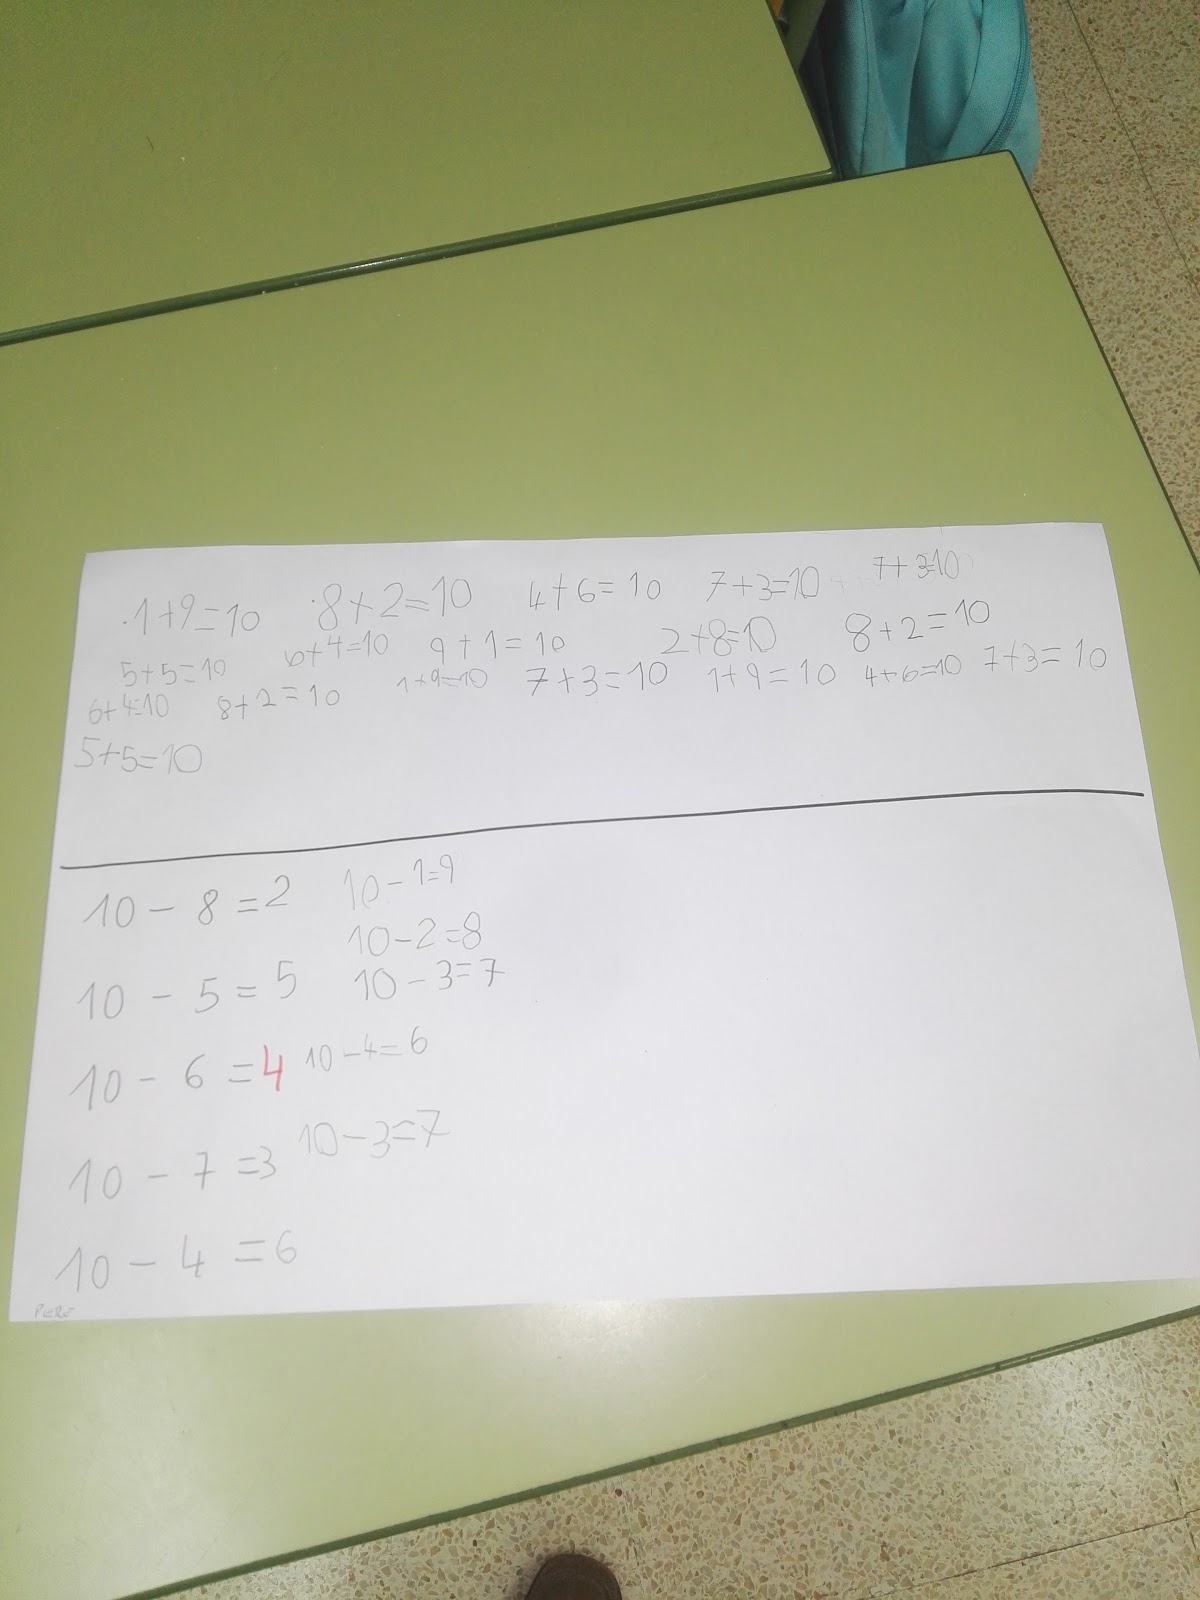 1+9=10 8+2=10 4+6=10 7+3=10 7+3=10
5+5=10 6+4=10 9+1=10 2+8=10 8+2=10
6+4=10 8+2=10 1+9=10 7+3=10 1+9=10 4+6=10 7+3=10
5+5=10
10-8=2 10-1=9
10-2=8
10-5=5 10-3=7
10-6=4 10-4=6
10-7=3 10-3=7
10-4=6
PERE